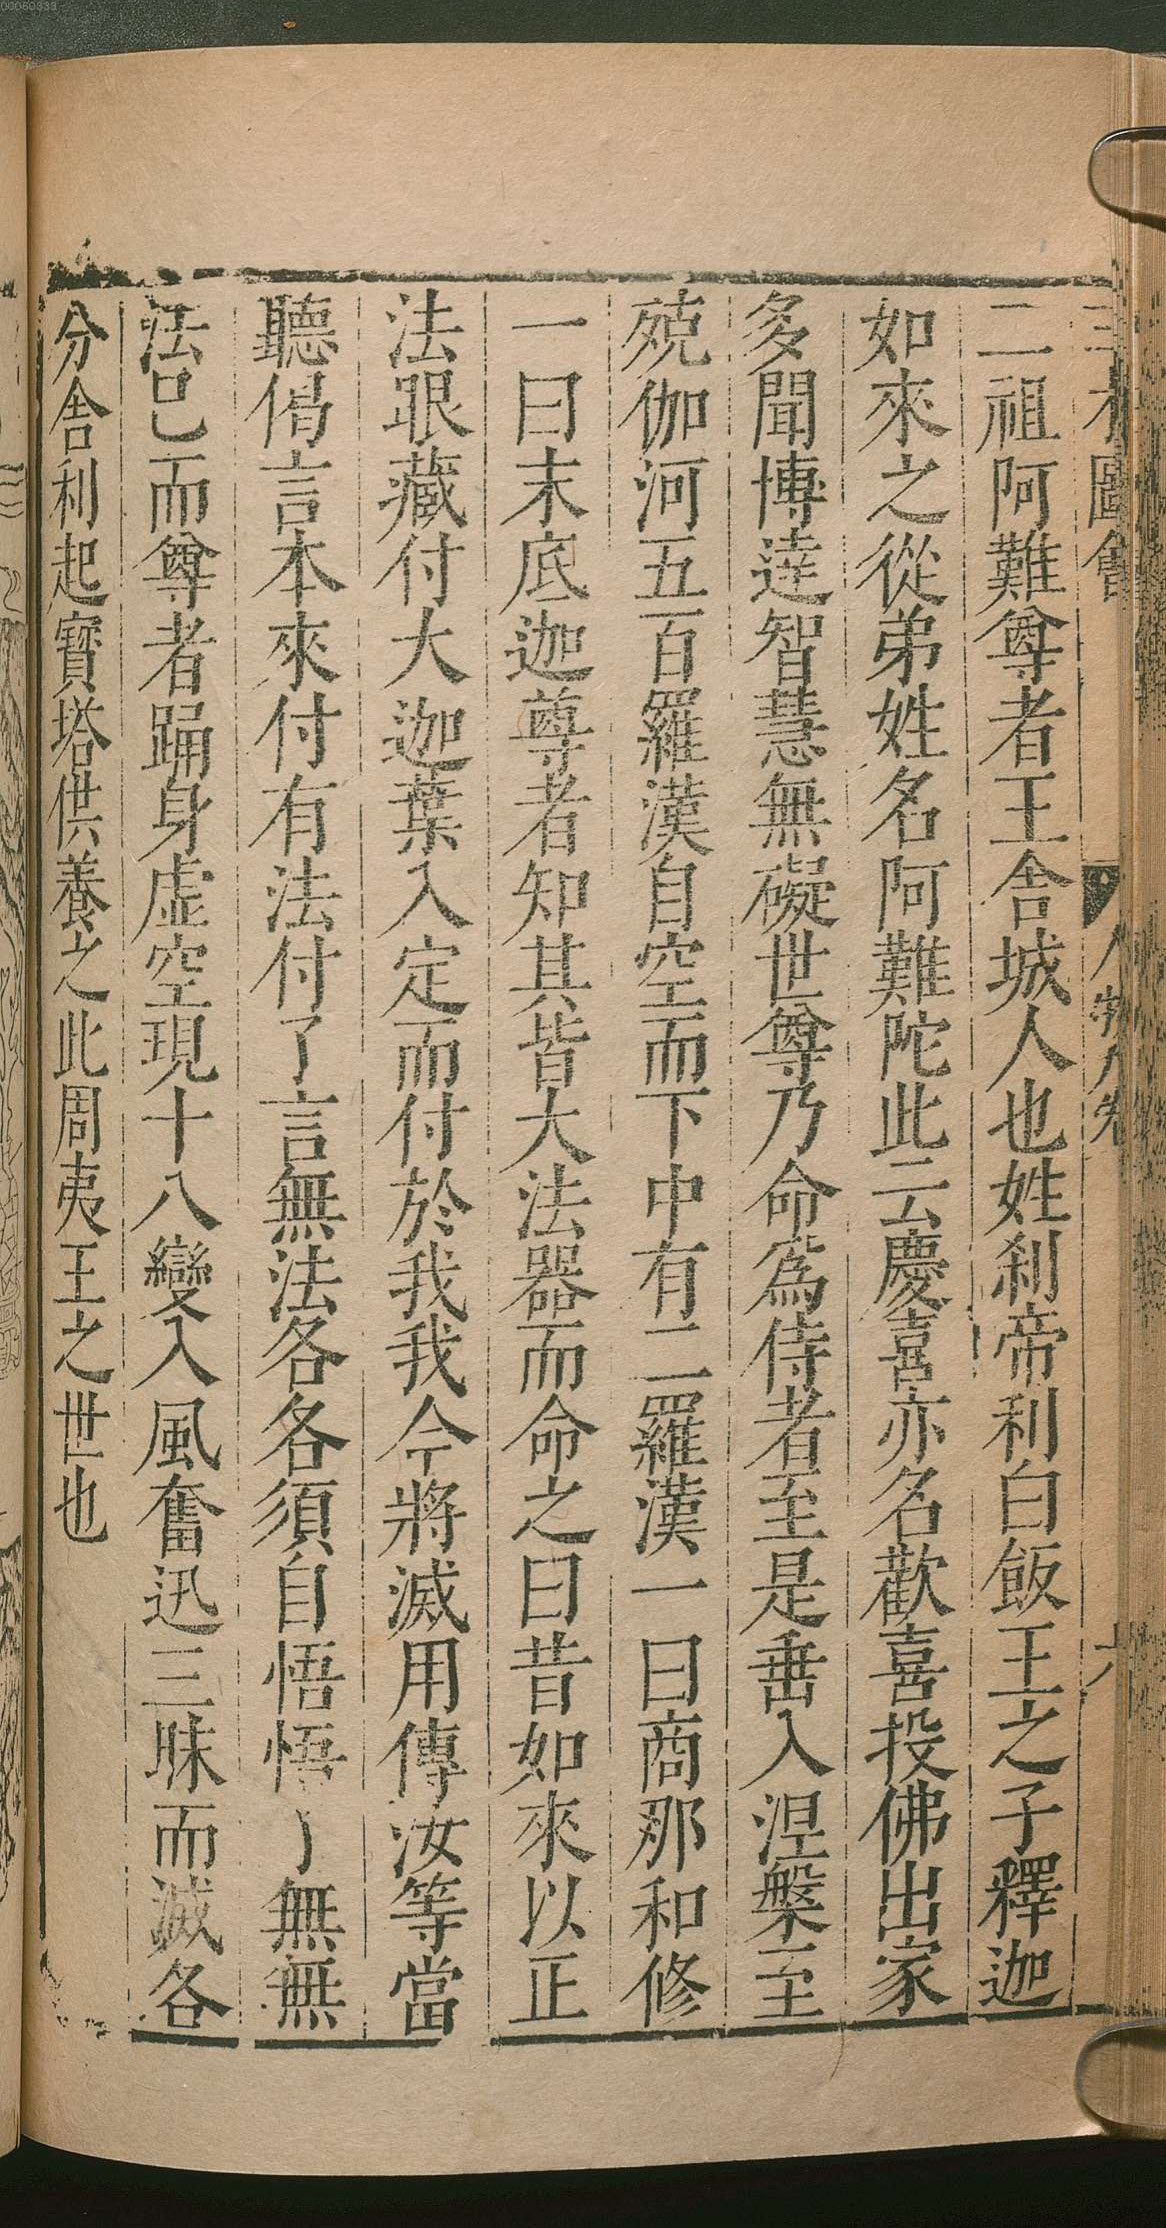 00060333
二祖阿難尊者王舍城人也姓刹帝利白飯王之子釋迦
如來之從弟姓名阿難陀此云慶喜亦名歡喜投佛出家
多聞博達智慧無礙世尊乃命爲侍者至是垂入涅槃至
殑伽河五百羅漢自空而下中有二羅漢一曰商那和修
一曰末底迦尊者知其皆大法器而命之曰昔如來以正
法眼藏付大迦葉入定而付於我我今將滅用傳汝等當
聽偈言本來付有法付了言無法各各須自悟悟了無無
法已而尊者踊身虛空現十八變入風奮迅三昧而滅各
分舍利起寶塔供養之此周夷王之世也